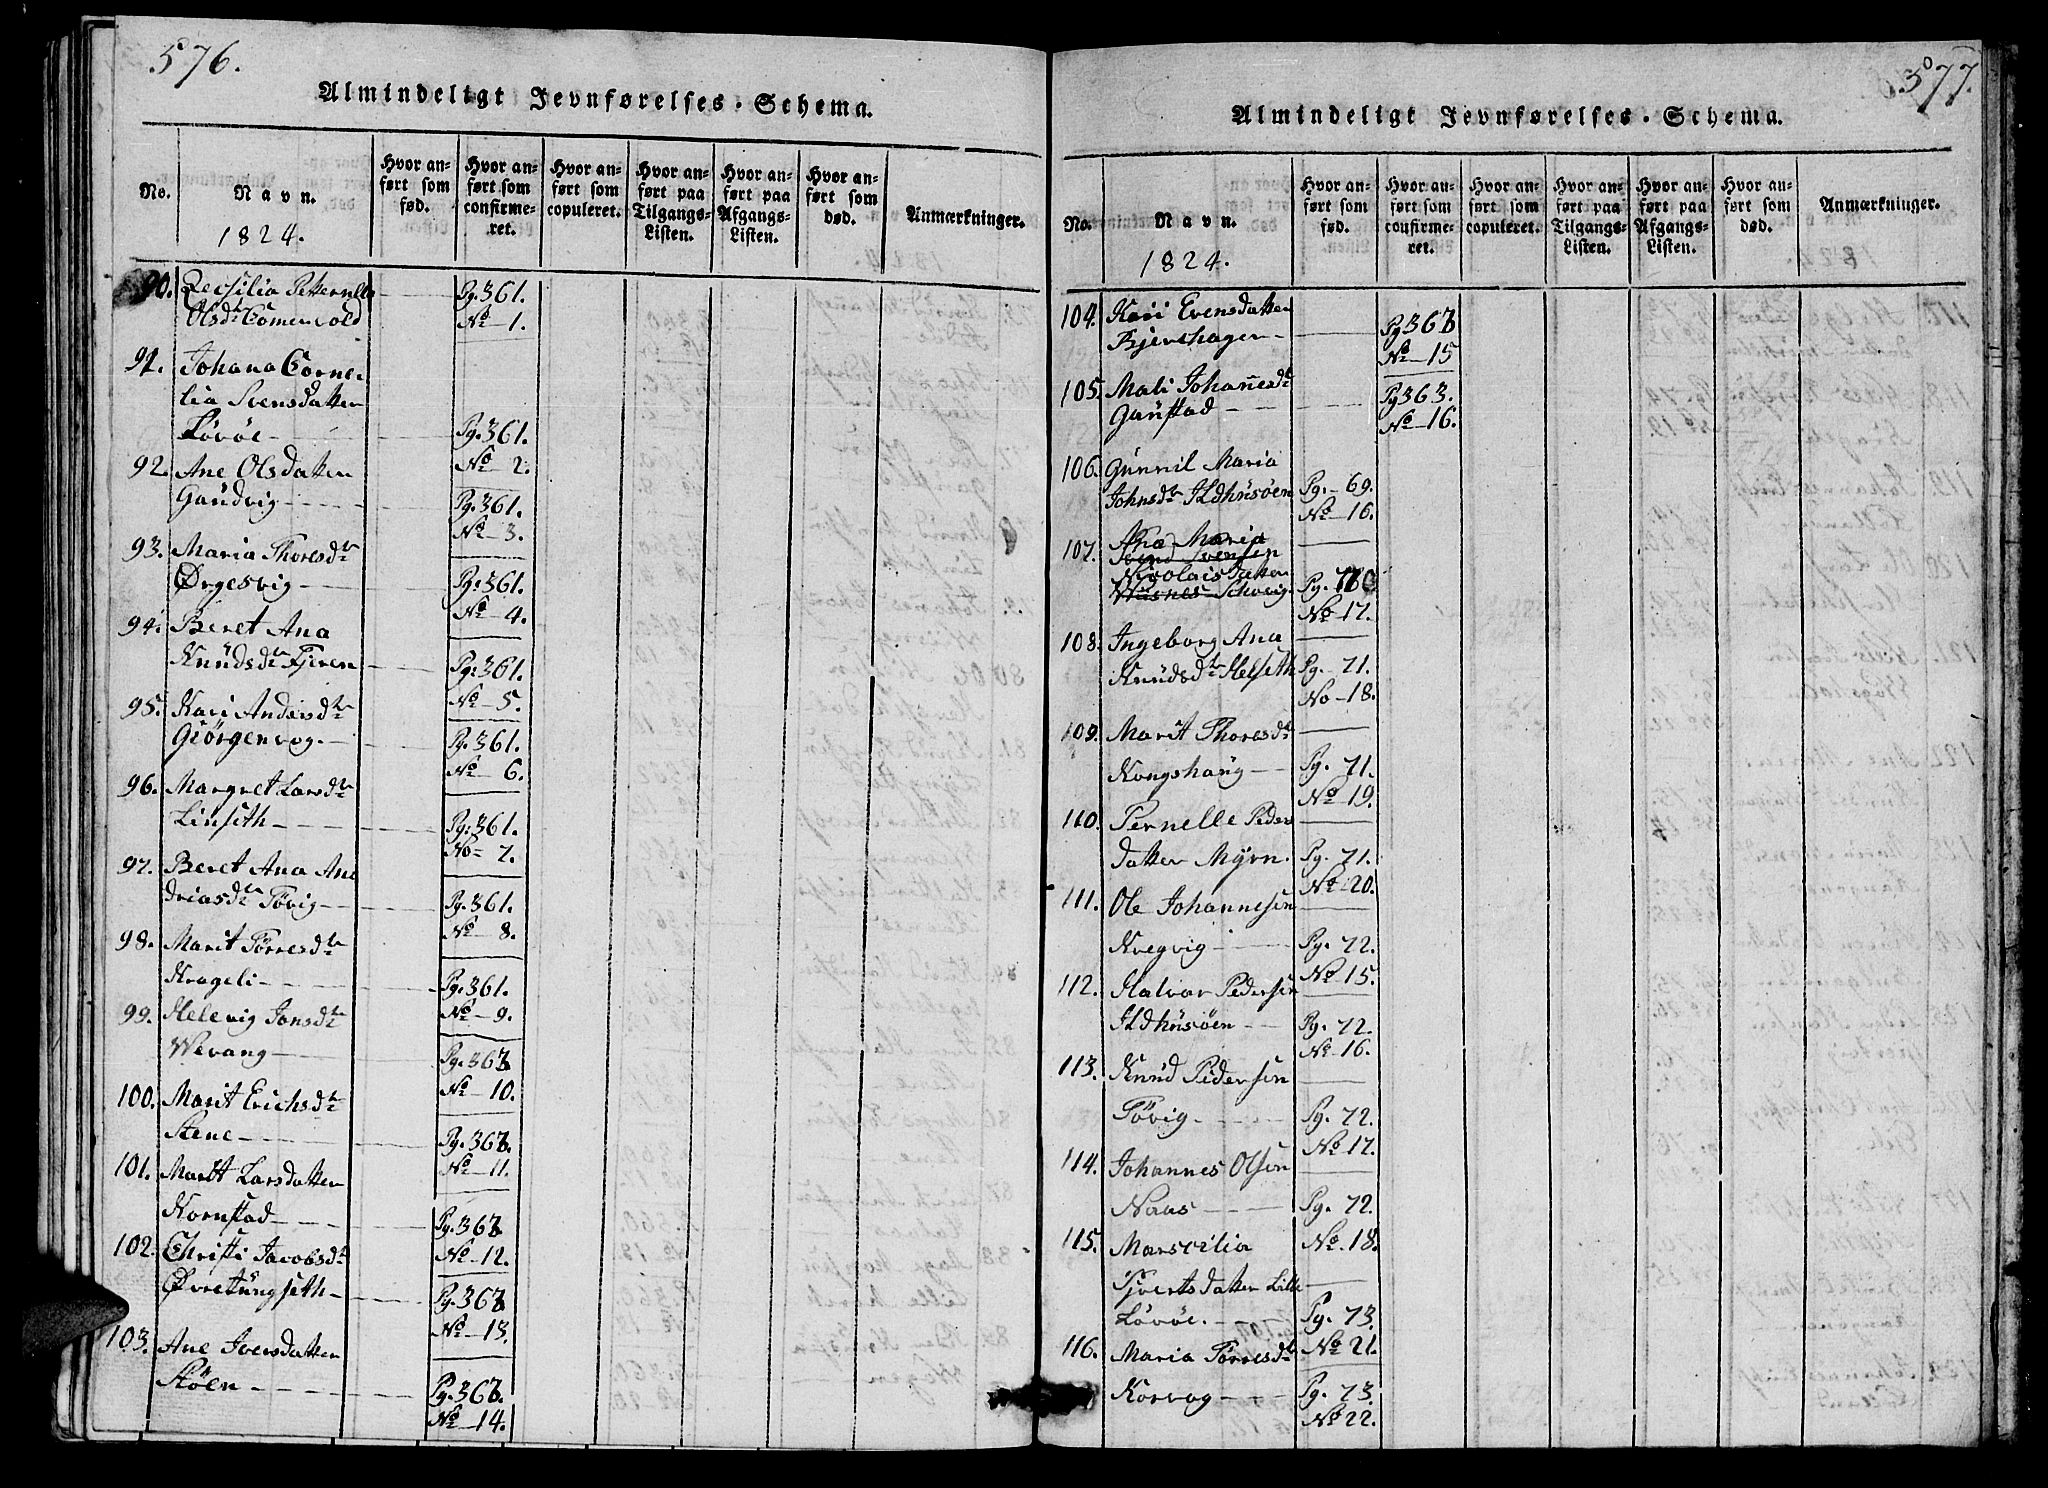 576.
Almindeligt Jevnførelses-Schema.
No.
Navn.
1824.
Hvor anført som fød.
Hvor anført som confirmeret.
Hvor anført som copuleret.
Hvor anført paa Tilgangs-Listen.
Hvor anført paa Afgangs-Listen.
Hvor anført som død.
Anmærkninger.
90. Zecsilia Petternelle
Olsdr Gomenvold Pg. 361.
No 1.
91. Johana Corne-
lia Svensdatter
Løvöe Pg. 361.
No 2.
92. Ane Olsdatter
Gaudvig Pg. 361.
No 3.
93. Maria Thoresdr
Ørgesvig Pg. 361.
No 4.
94. Beret Ana
Knudsdr Fjeren Pg. 361.
No 5.
95. Kari Andersdr
Giörgenvog Pg. 361.
No 6.
96. Margret Larsdr
Linseth Pg. 361.
No 7.
97. Beret Ana An-
driasdr Tövig Pg. 361.
No 8.
98. Marit Törresdr
Krageli Pg. 361.
No 9.
99. Helevig Jonsdr
Wevang Pg. 362
No 10.
100. Marit Erichsdr
Stene Pg. 362.
No 11.
101. Marit Larsdatter
Kornstad Pg. 362
No 12.
102. Christi Jacobsdr
Øvretungseth Pg. 362
No 13.
103. Ane Iversdatter
Støen Pg. 362.
No 14.
577.
Almindeligt Jevnførelses-Schema.
No.
Navn.
1824.
Hvor anført som fød.
Hvor anført som confirmeret.
Hvor anført som copuleret.
Hvor anført paa Tilgangs-Listen.
Hvor anført paa Afgangs-Listen.
Hvor anført som død.
Anmærkninger.
104. Kari Evensdatter
Bjerchagen Pg 362
No 15
105. Mali Johannesdr
Gaustad Pg 363.
No 16.
106. Gunnil Maria
Johnsdr Ildhusöen Pg. 69.
No 16.
107. Ana Maria
Svensen
Nicolaisdatter
Husnes Schevig Pg. 70
No 17.
108. Ingeborg Ana
Knudsdr Helseth Pg. 71.
No 18.
109. Marit Thoresdr
Kongshaug Pg. 71.
No 19.
110. Pernelle Peders
datter Myrn. Pg. 71.
No 20.
111. Ole Johannesen
Kvegvig Pg. 72.
No 15.
112. Halvor Pedersen
Ildhusöen Pg. 72.
No 16.
113. Knud Pedersen
Tövig Pg. 72.
No 17.
114. Johannes Olsen
Naas Pg. 72.
No 18.
115. Marscilia
Sjvertsdatter Lille
Lövöe. Pg. 73.
No 21.
116. Maria Törresdr
Korvog Pg. 73.
No 22.